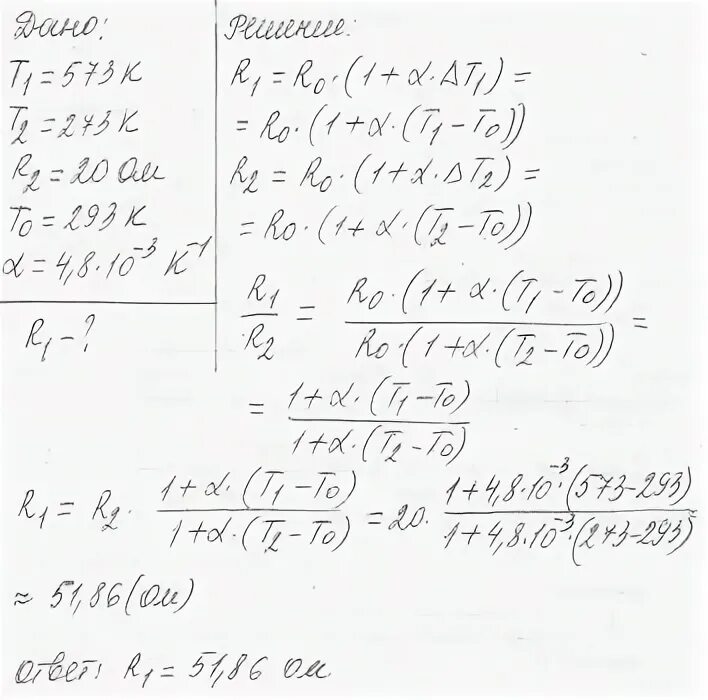 Дано:
T₁ = 573 К
T₂ = 273 К
R₂ = 20 Ом
T₀ = 293 К
α = 4,8·10⁻³ К⁻¹
R₁ – ?
Решение:
R₁ = R₀·(1+α·ΔT₁) =
= R₀·(1+α·(T₁–T₀))
R₂ = R₀·(1+α·ΔT₂) =
= R₀·(1+α·(T₂–T₀))
R₁/R₂ = R₀·(1+α·(T₁–T₀)) / R₀·(1+α·(T₂–T₀)) =
= 1+α·(T₁–T₀) / 1+α·(T₂–T₀)
R₁ = R₂· 1+α·(T₁–T₀) / 1+α·(T₂–T₀) = 20· 1+4,8·10⁻³·(573–293) / 1+4,8·10⁻³·(273–293) ≈
≈ 51,86 (Ом)
ответ: R₁ = 51,86 Ом.